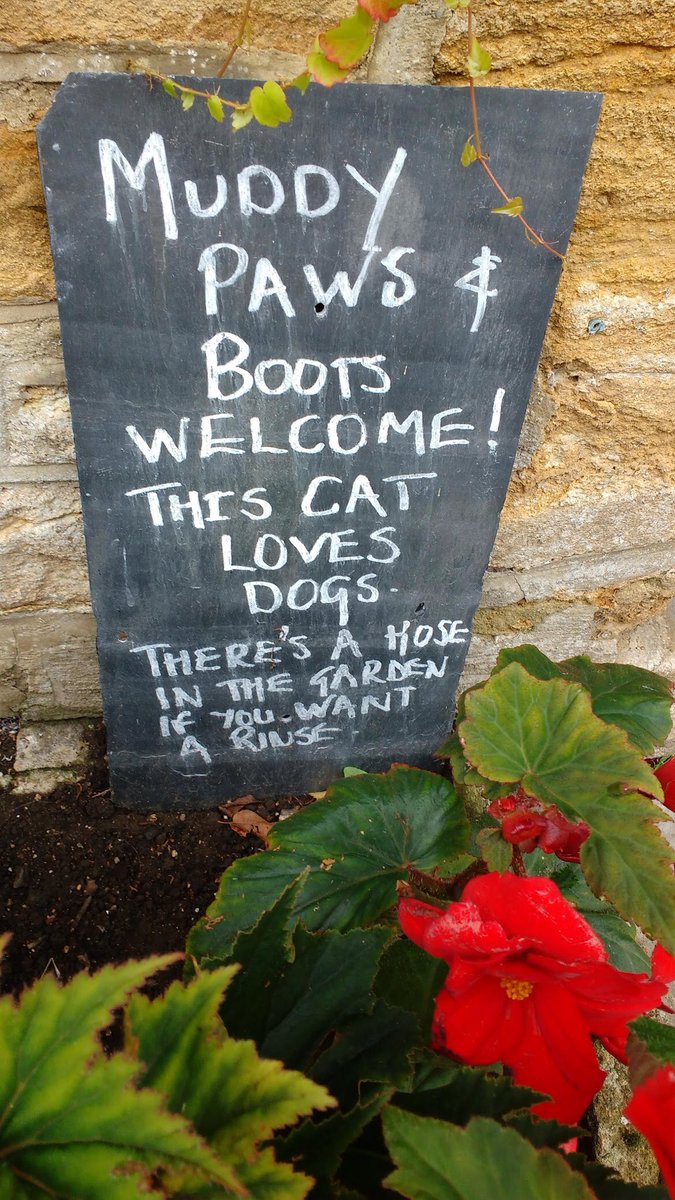 MUDDY
PAWS &
BOOTS
WELCOME!
THIS CAT
LOVES
DOGS.
THERE'S A HOSE
IN THE GARDEN
IF YOU WANT
A RINSE.